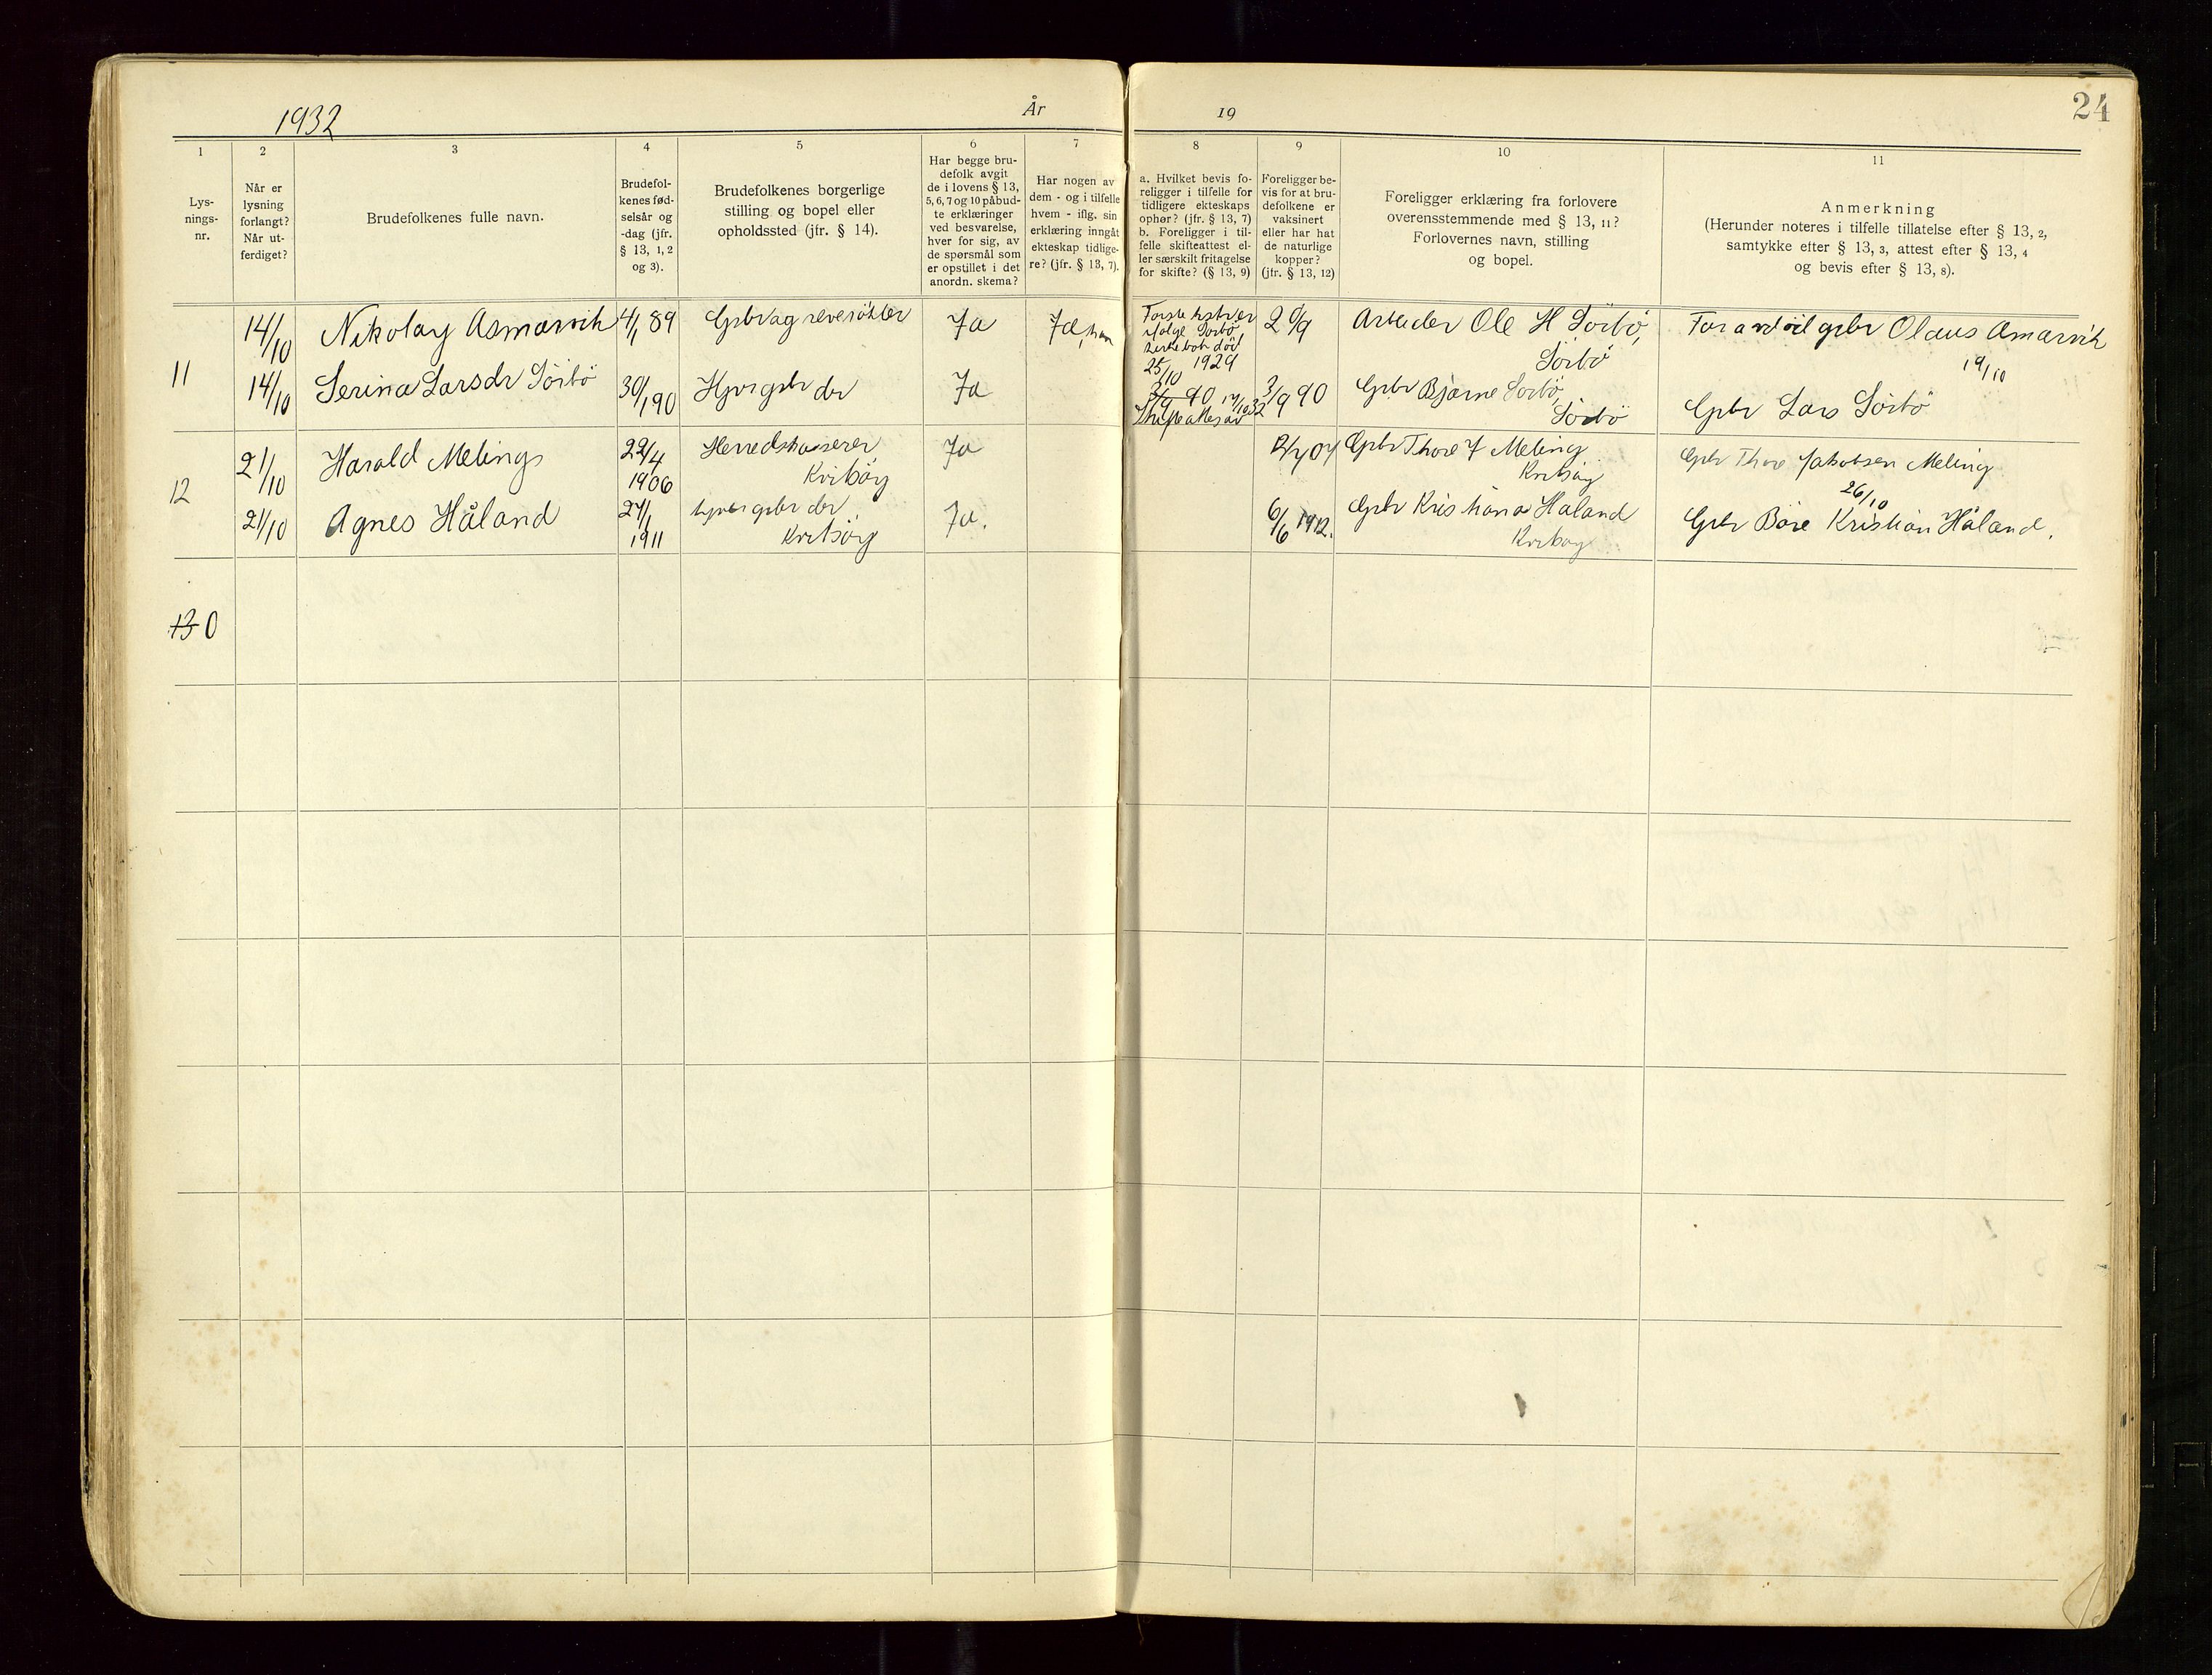 1932
År
19
24
1
Lys-
nings-
nr.
2
Når er
lysning
forlangt?
Når ut-
ferdiget?
3
Brudefolkenes fulle navn.
4
Brudefol-
kenes fød-
selsår og
-dag (jfr.
§ 13, 1, 2
og 3).
5
Brudefolkenes borgerlige
stilling og bopel eller
opholdssted (jfr. § 14).
6
Har begge bru-
defolk avgit
de i lovens § 13,
5, 6, 7 og 10 påbud-
te erklæringer
ved besvarelse,
hver for sig, av
de spørsmål som
er opstillet i det
anordn. skema?
7
Har nogen av
dem - og i tilfelle
hvem - iflg. sin
erklæring inngått
ekteskap tidlige-
re? (jfr. § 13, 7).
8
a. Hvilket bevis fo-
religger i tilfelle for
tidligere ekteskaps
ophør? (jfr. § 13, 7)
b. Foreligger i til-
felle skifteattest el-
ler særskilt fritagelse
for skifte? (§ 13, 9)
9
Foreligger be-
vis for at bru-
defolkene er
vaksinert
eller har hat
de naturlige
kopper?
(jfr. § 13, 12)
10
Foreligger erklæring fra forlovere
overensstemmende med § 13, 11?
Forlovernes navn, stilling
og bopel.
11
Anmerkning
(Herunder noteres i tilfelle tillatelse efter § 13, 2,
samtykke efter § 13, 3, attest efter § 13, 4
og bevis efter § 13, 8).
11
14/10
Nikolay Asmarvik
4/1 89
Gbr og reverökter
Ja
Ja, han
Förste hustru er
ifølge Sörbö
kirkebok död
25/10 1929
20/9
Arbeider Ole H Sörbö,
Sörbö
Forandöil gbr Olaus Amarvik
19/10
14/10
Serina Larsdr Sörbö
30/1 90
Hjv gbr dr
Ja
3/9 90
Skifteattest av 14/10 32
3/9 90
Gbr Bjarne Sörbö,
Sörbö
Gbr Lars Sörbö
12
21/10
Harald Meling
22/4
1906
Herredskasserer
Kvitsöy
Ja
Gbr Thore J Meling
Kvitsöy
Gbr Thore Jakobsen Meling
26/10
21/10
Agnes Håland
27/1
1911
hjv gbr dr
Kvitsöy
Ja.
6/6 1912.
Gbr Kristian Håland
Kvitsöy
Gbr Böre Kristian Håland.
13 0